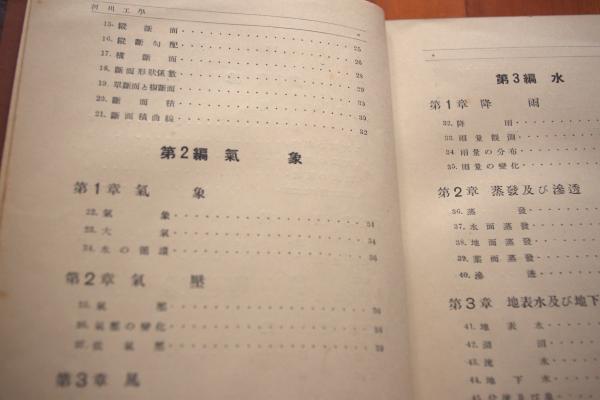 河川工學
15. 縱斷面 25
16. 縱斷勾配 26
17. 橫斷面 28
18. 斷面形狀係數 29
19. 單斷面と複斷面 30
20. 斷面積
21. 斷面積曲線 32
第2編 氣象
第1章 氣象
22. 氣象 34
23. 大氣 34
24. 水の循環 36
第2章 氣壓
25. 氣壓
26. 氣壓の變化
27. 低氣壓
第3章 風
第3編 水
第1章 降雨
32. 降雨
33. 雨量觀測
34. 雨量の分布
35. 雨量の變化
第2章 蒸發及び滲透
36. 蒸發
37. 水面蒸發
38. 地面蒸發
39. 葉面蒸發
40. 滲透
第3章 地表水及び地下
41. 地表水
42. 湖沼
43. 流水
44. 地下水
45.